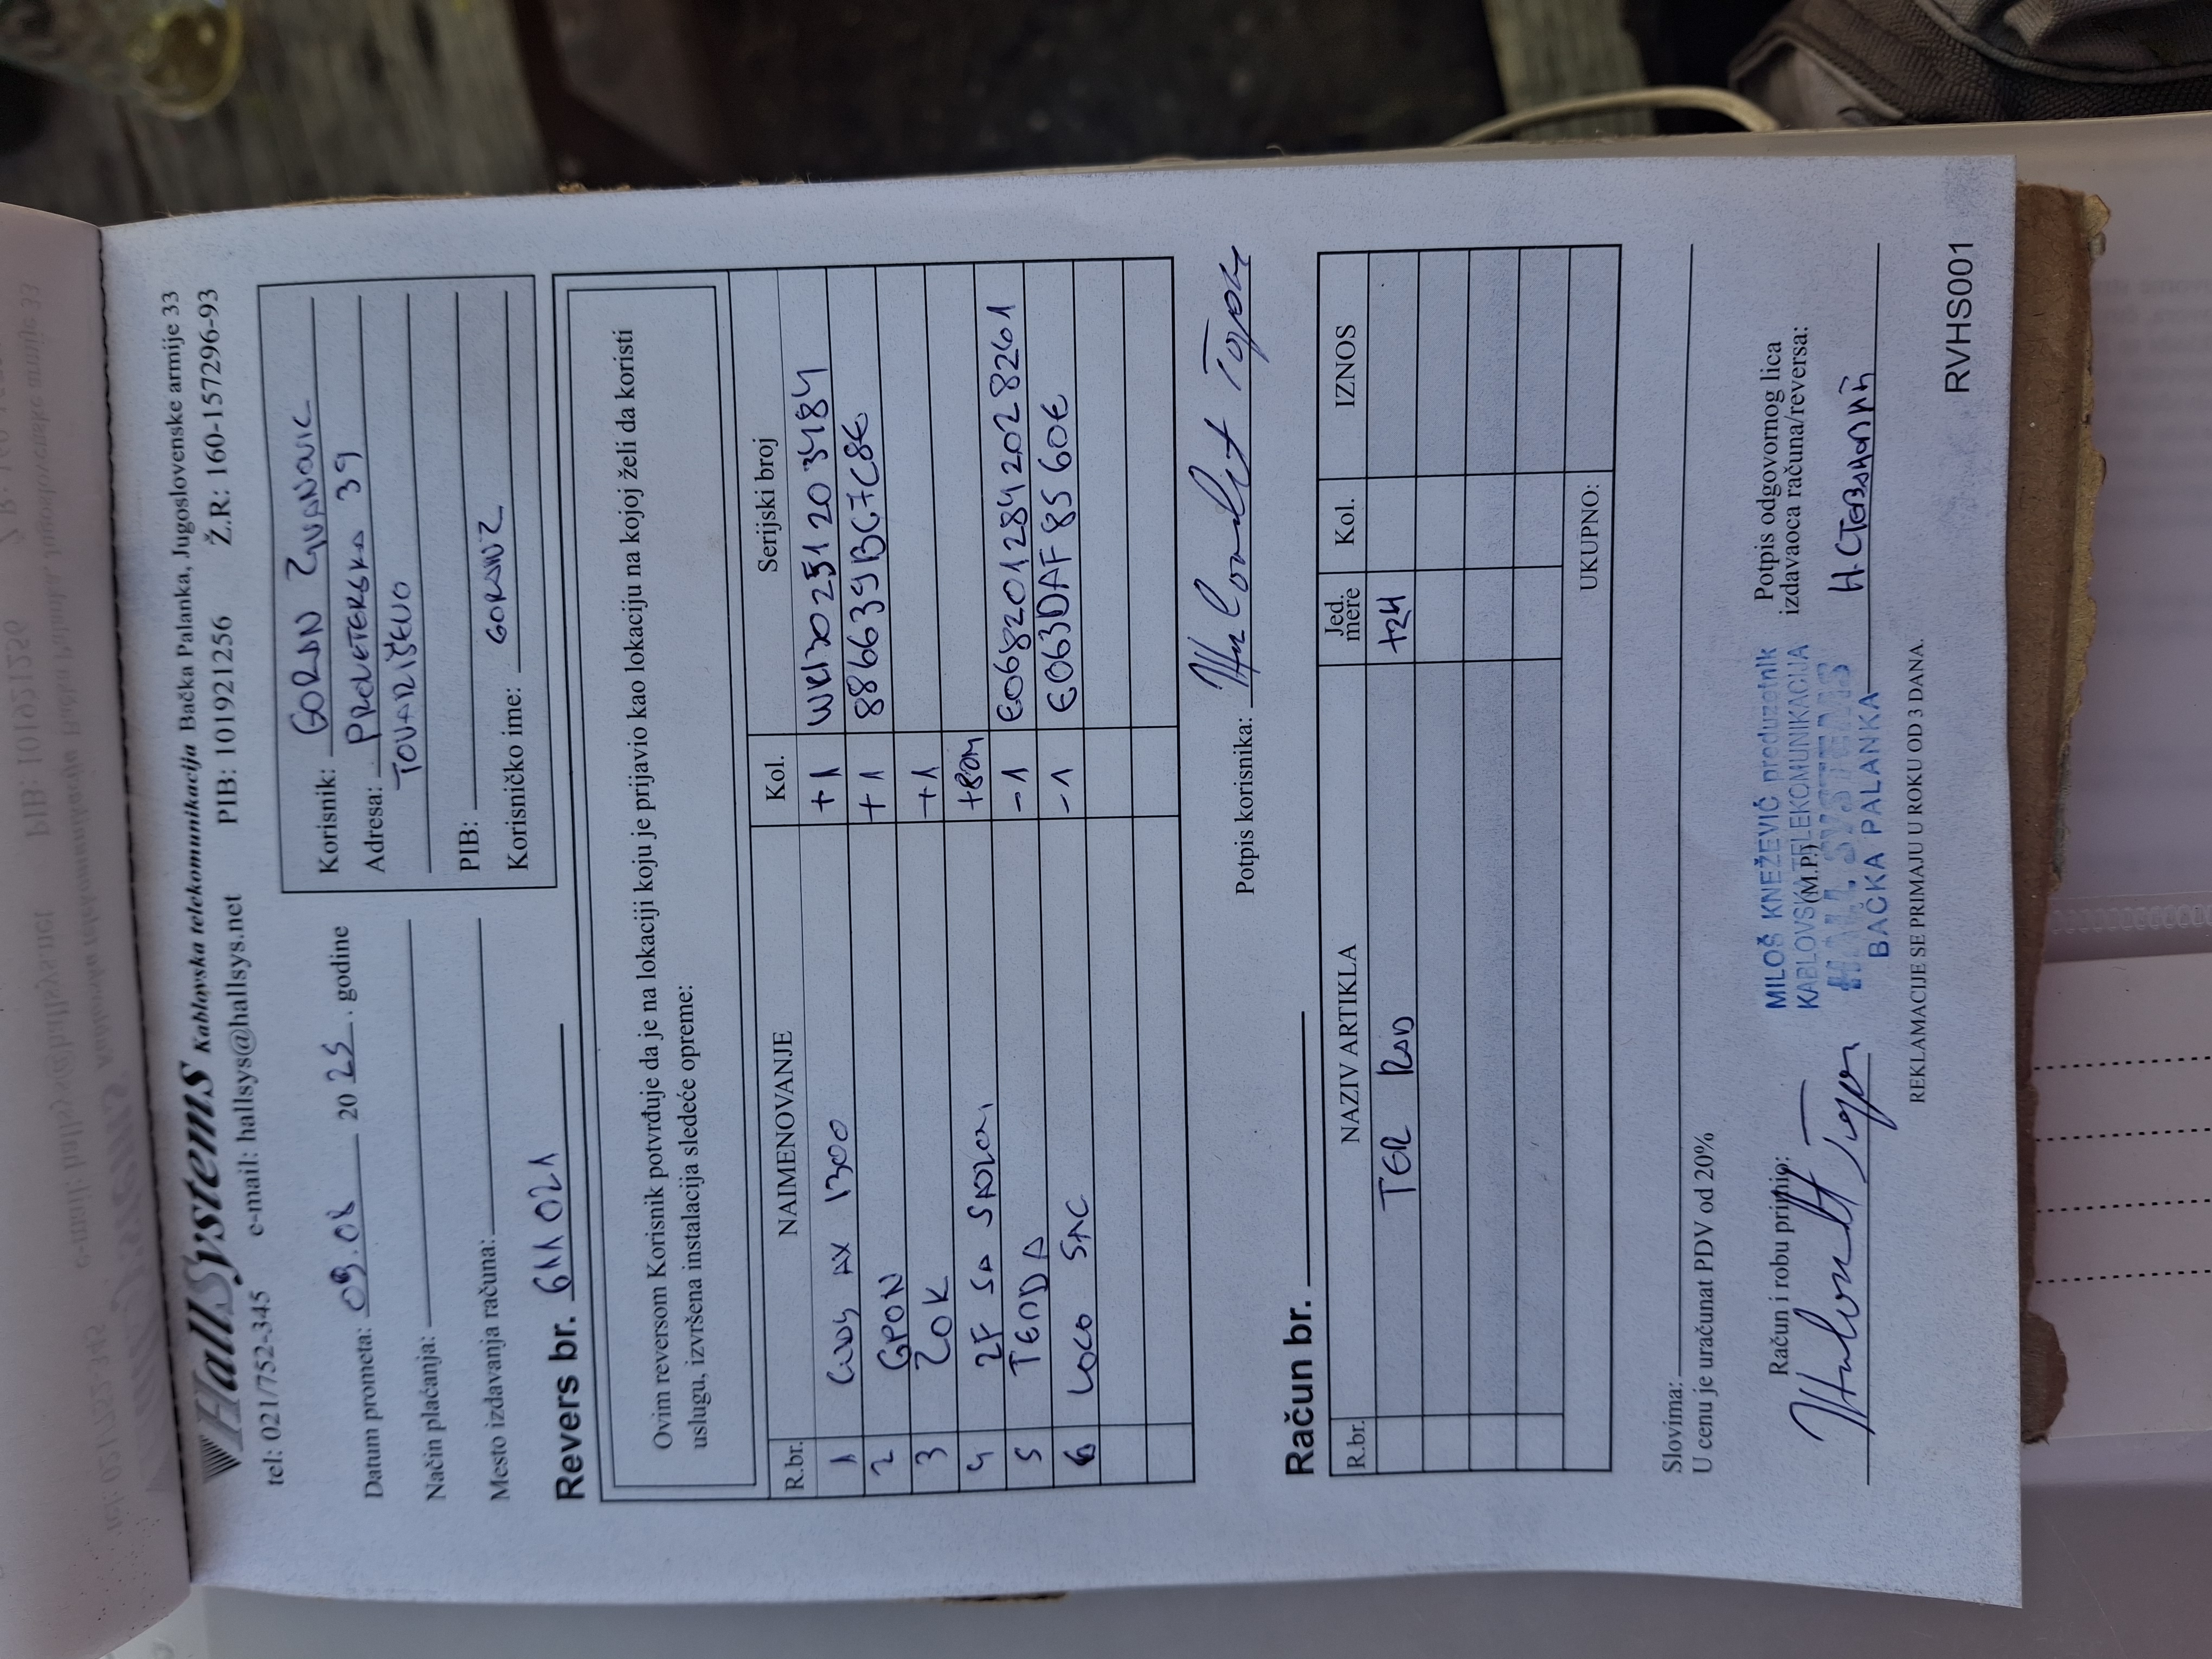 HallSystems Kablovska telekomunikacija Bačka Palanka, Jugoslovenske armije 33
tel: 021/752-345 e-mail: hallsys@hallsys.net PIB: 101921256 Ž.R: 160-157296-93
Datum prometa: 09.08 20 25. godine
Način plaćanja:
Mesto izdavanja računa:
Korisnik: GORAN
Adresa: PROLETERSKA 39
TOVARIŠEVO
PIB:
Korisničko ime: GORANZ
Revers br. 611 021
Ovim reversom Korisnik potvrđuje da je na lokaciji koju je prijavio kao lokaciju na kojoj želi da koristi
uslugu, izvršena instalacija sledeće opreme:
R.br. NAIMENOVANJE Kol. Serijski broj
1 Cudy AX 1300 +1
2 GPON +1 886639BG7C8E
3 ZOK +1
4 2F SA +80m
5 TENDA -1 E0682012842028261
6 LOCO 5AC -1 E063DAF8560E
Potpis korisnika:
Račun br.
R.br. NAZIV ARTIKLA Jed. mere Kol. IZNOS
TER RAD +2H
UKUPNO:
Slovima:
U cenu je uračunat PDV od 20%
Račun i robu primio:
MILOŠ KNEŽEVIĆ preduzetnik
KABLOVSKA TELEKOMUNIKACIJA
(M.P.)
HALL SYSTEMS
BAČKA PALANKA
Potpis odgovornog lica
izdavaoca računa/reversa:
REKLAMACIJE SE PRIMAJU U ROKU OD 3 DANA.
RVHS001